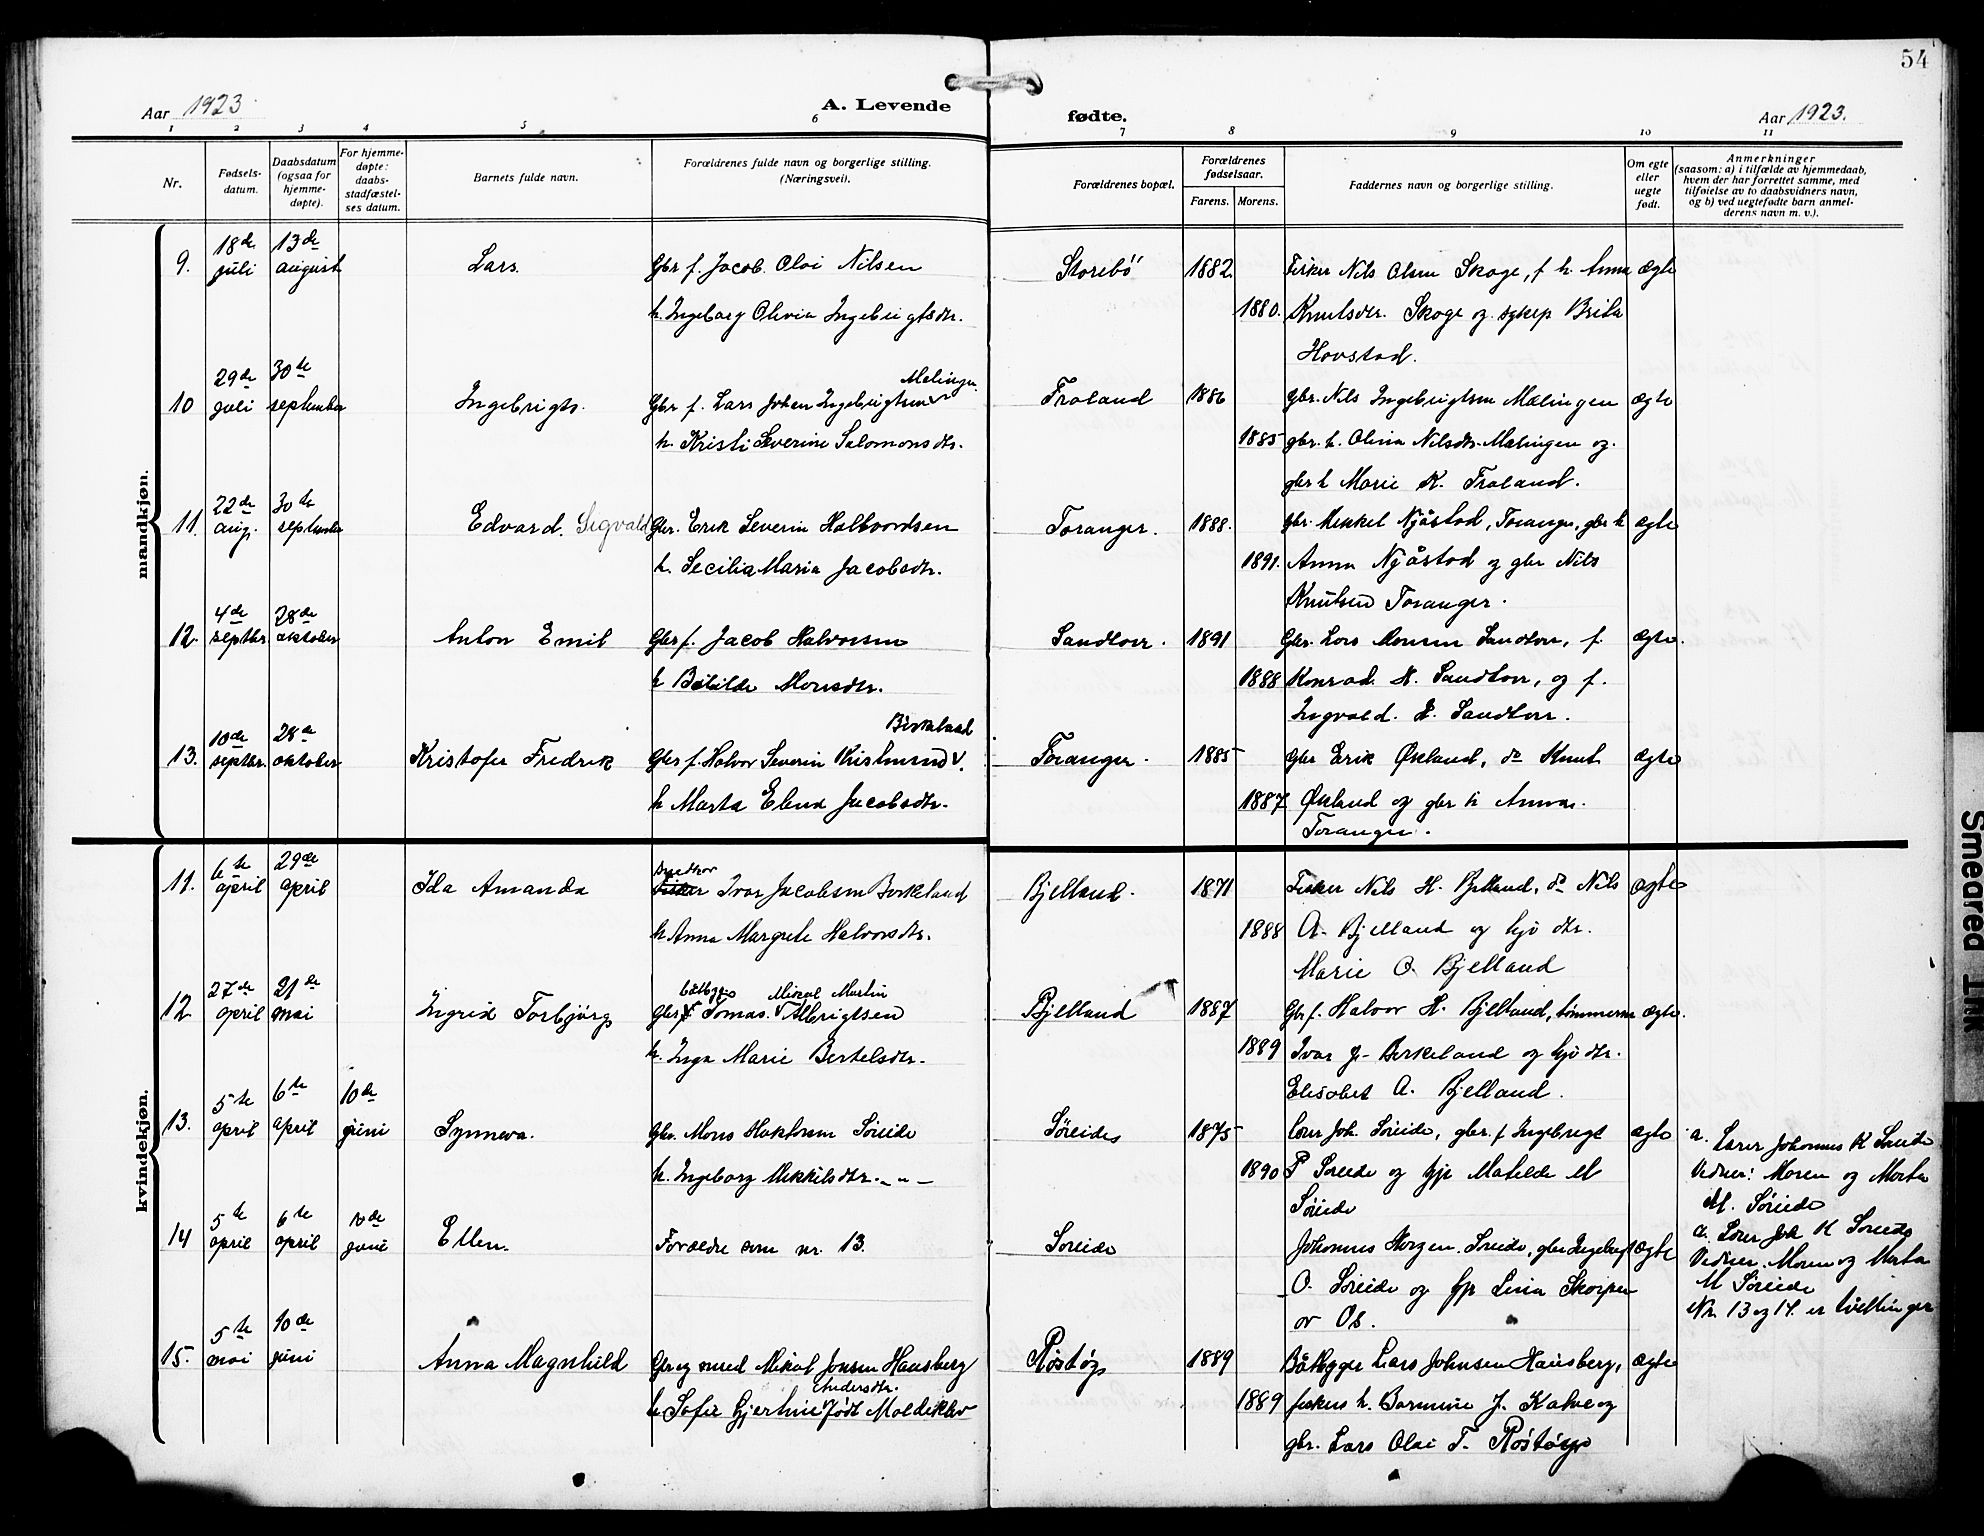 54
Aar 1923. A. Levende fødte. Aar 1923.
1 2 3 4 5 6 7 8 9 10 11
Nr.
Fødsels-
datum.
Daabsdatum
(ogsaa for
hjemme-
døpte).
For hjemme-
døpte:
daabs-
stadfæstel-
ses datum.
Barnets fulde navn.
Forældrenes fulde navn og borgerlige stilling.
(Næringsvei).
Forældrenes bopæl.
Forældrenes
fødselsaar.
Farens. Morens.
Faddernes navn og borgerlige stilling.
Om egte
eller
uegte
født.
Anmerkninger
(saasom: a) i tilfælde av hjemmedaab,
hvem der har forrettet samme, med
tilføielse av to daabsvidners navn,
og b) ved uegtefødte barn anmel-
derens navn m. v.).
mandkjøn.
18de 13de
9. juli august Lars. Gbr f. Jacob Olai Nilsen Storebö 1882 Fisker Nils Olsen Skoge, f h. Anna ægte
h. Ingeborg Olivia Ingebrigtsdtr. 1880. Knutsdtr. Skoge og Brita
Hovstad.
29de 30te Malingen
10 juli september Ingebrigt. Gbr f. Lars Johan Ingebrigtsen Froland 1886 gbr. Nils Ingebrigtsen Mælingen ægte
h. Kristi Severine Salomonsdtr. 1885 gbr. h. Olina Nilsdtr. Mælingen og
gbr h Marie K. Froland.
22de 30te
11. aug. september Edvard. Sigvald Gbr. Erik Severin Halvordsen Toranger. 1888. gbr. Mikkel Njåstad, Toranger, gbr h ægte
h. Secilia Maria Jacobsdtr. 1891. Anna Njåstad og gbr Nils
Knutsen Toranger.
4de 28de
12 septbr. oktober Anton Emil Gbr f. Jacob Halvorsen Sandtorv. 1891 Gbr. Lars Monsen Sandtorv, f. ægte.
h Botilde Monsdtr. 1888 Konrad. H. Sandtorv, og f.
Ingvald. H. Sandtorv.
10de 28de Birkeland
13. septbr. oktober Kristofer Fredrik Gbr f. Halvor Severin Kristensen Toranger. 1885 gbr Erik Økland, do Knut ægte
h Marta Elena Jacobsdtr. 1887 Økland og gbr h Anna
Toranger.
kvindekjøn.
6te 29de
11. april april Ida Amanda Ivar Jacobsen Birkeland Bjelland. 1871 Fisker Nils H. Bjelland, do Nils ægte
h Anna Margrete Halvorsdtr. 1888 A. Bjelland og dtr.
Marie O. Bjelland
27de 21de båtbygger Mikal Martin
12 april mai Ingrid Torbjørg Gbr f Tomas. Albrigtsen Bjelland 1887 Gbr f. Halvor H. Bjelland, tømmerm ægte.
h. Inga Marie Bertelsdtr. 1889 Ivar J. Birkeland og dtr.
Elisabet A. Bjelland.
5te 6te 10de
13. april april juni Synneva. Gbr. Mons Søreide Søreide 1875 Lærer Joh. Søreide, gbr. f Ingebrigt ægte a. Lærer Johannes K Søreide
h. Ingeborg Mikkelsdtr. - " - 1890 P Søreide og Matilde M Vidner: Moren og Marta
Søreide M. Søreide
5te 6te 10de
14 april april juni Ellen. Forældre som nr. 13. Søreide Johannes Søreide, gbr Ingebrigt ægte a. Lærer Joh K Søreide
O. Søreide og Lina Skorpen Vidner. Moren og Marta
av Os. M Søreide
Nr. 13 og 14 er tvillinger
5te 10de
15. mai juni Anna Magnhild Gbr og smed Mikal Jonsen Hausberg Røstøy 1889 Båtbygger Lars Johnsen Hausberg, ægte
Andersdtr.
h Sofie Gjertine født Moldeklev 1889 fiskers h. Barmine J. Kalve og
gbr. Lars Olai T. Røstøy
Smeared Ink